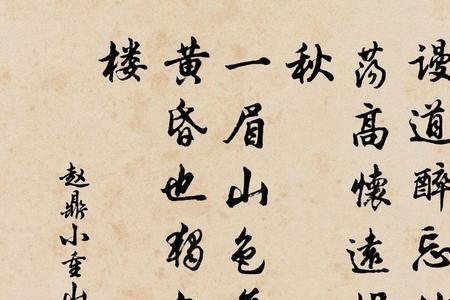 谩道醉忘
荡高懷遠
秋
一眉山色
黄昏也獨
楼
赵鼎小重山